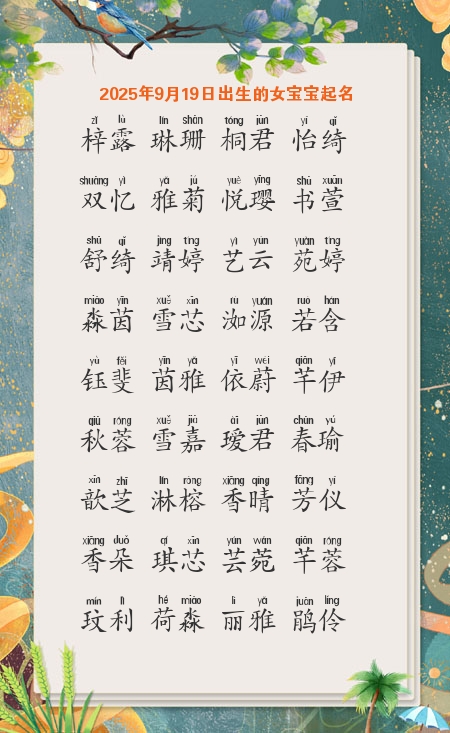 2025年9月19日出生的女宝宝起名
zǐ lù lín shān tóng jūn yí qǐ
梓露 琳珊 桐君 怡绮
shuāng yì yǎ jú yuè yīng shū xuān
双忆 雅菊 悦璎 书萱
shū qǐ jìng tíng yì yún yuàn tíng
舒绮 靖婷 艺云 苑婷
miǎo yīn xuě xīn rù yuán ruò hán
淼茵 雪芯 洳源 若含
yù fěi yīn yǎ yī wèi qiān yī
钰斐 茵雅 依蔚 芊伊
qiū róng xuě jiā ài jūn chūn yú
秋蓉 雪嘉 瑷君 春瑜
xīn zhī lín róng xiāng qíng fāng yí
歆芝 淋榕 香晴 芳仪
xiāng duǒ qí xīn yún wǎn qiān róng
香朵 琪芯 芸菀 芊蓉
mín lì hé miǎo lì yǎ juān líng
玟利 荷淼 丽雅 鹃伶